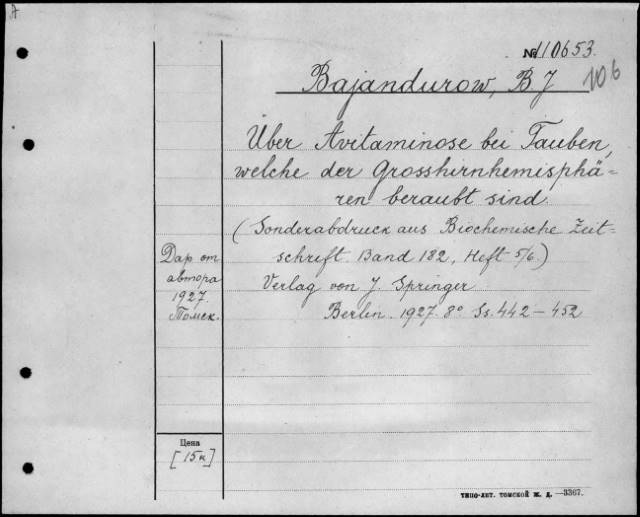 А
№ 110653.
106
Bajandurow, B J
Über Avitaminose bei Tauben,
welche der Grosshirnhemisphä-
ren beraubt sind.
(Sonderabdruck aus Biochemische Zeit-
schrift. Band 182, Heft 5/6.)
Verlag von J. Springer
Berlin. 1927. 8° Ss. 442-452
Дар от
автора
1927.
Томск.
Цена
[15к]
ТИПО-ЛИТ. ТОМСКОЙ Ж. Д. —3367.